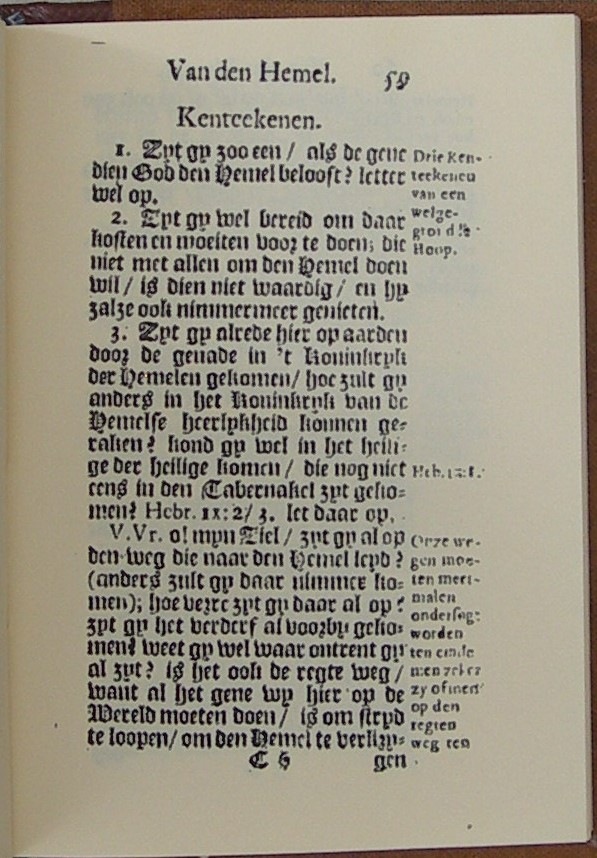 Van den Hemel. 59
Kenteekenen.
1. Zyt gy zoo een / als de gene
dien God den Hemel belooft? letter
wel op.
2. Zyt gy wel bereid om daar
kosten en moeiten voor te doen; die
niet met allen om den Hemel doen
wil / is dien niet waardig / en hy
zalze ook nimmermeer genieten.
3. Zyt gy alrede hier op aarden
door de genade in 't Koninkryk
der Hemelen gekomen / hoe zult gy
anders in het Koninkryk van de
Hemelse heerlykheid konnen ge-
raken? kond gy wel in het heili-
ge der heilige komen / die nog niet
eens in den Tabernakel zyt geko-
men? Hebr. 1x: 2/ 3. let daar op.
V.Vr. o! myn Ziel / zyt gy al op
den weg die naar den Hemel leyd?
(anders zult gy daar nimmer ko-
men); hoe verre zyt gy daar al op?
zyt gy het verderf al voorby geko-
men? weet gy wel waar ontrent gy
al zyt? is het ook de regte weg /
want al het gene wy hier op de
Wereld moeten doen / is om stryd
te loopen / om den Hemel te verkry-
C 5 gen
Drie Ken-
teekenen
van een
welge-
gronde
Hoop.
Onze we-
gen moe-
ten meer-
malen
ondersogt
worden
ten einde
men zeker
zy of men
op den
regten
weg ten